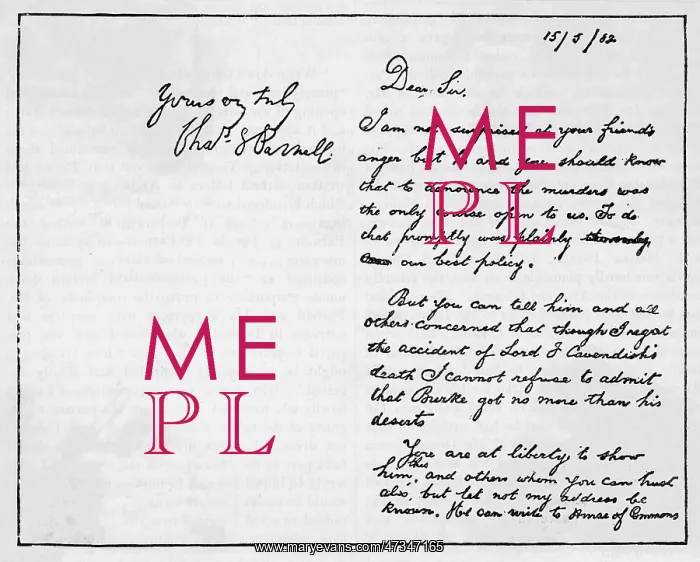 15/5/82
Dear Sir,
I am not surprised at your friend's
anger but he and you should know
that to denounce the murders was
the only course open to us. To do
that promptly was plainly
our best policy.
But you can tell him and all
others concerned that though I regret
the accident of Lord F Cavendish's
death I cannot refuse to admit
that Burke got no more than his
deserts
You are at liberty to show
him this, and others whom you can trust
also, but let not my address be
known. He can write to House of Commons
Yours very truly
Chas. S Parnell
ME
PL
ME
PL
www.maryevans.com/47347165